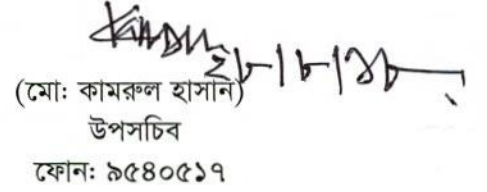 ২৮।৮।১৮
(মো: কামরুল হাসান)
উপসচিব
ফোন: ৯৫৪০৫১৭